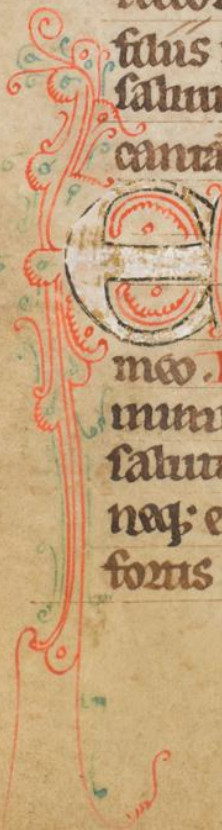 filus
saluu
canta
E
meo.
munu
saluta
neq; e
fortis